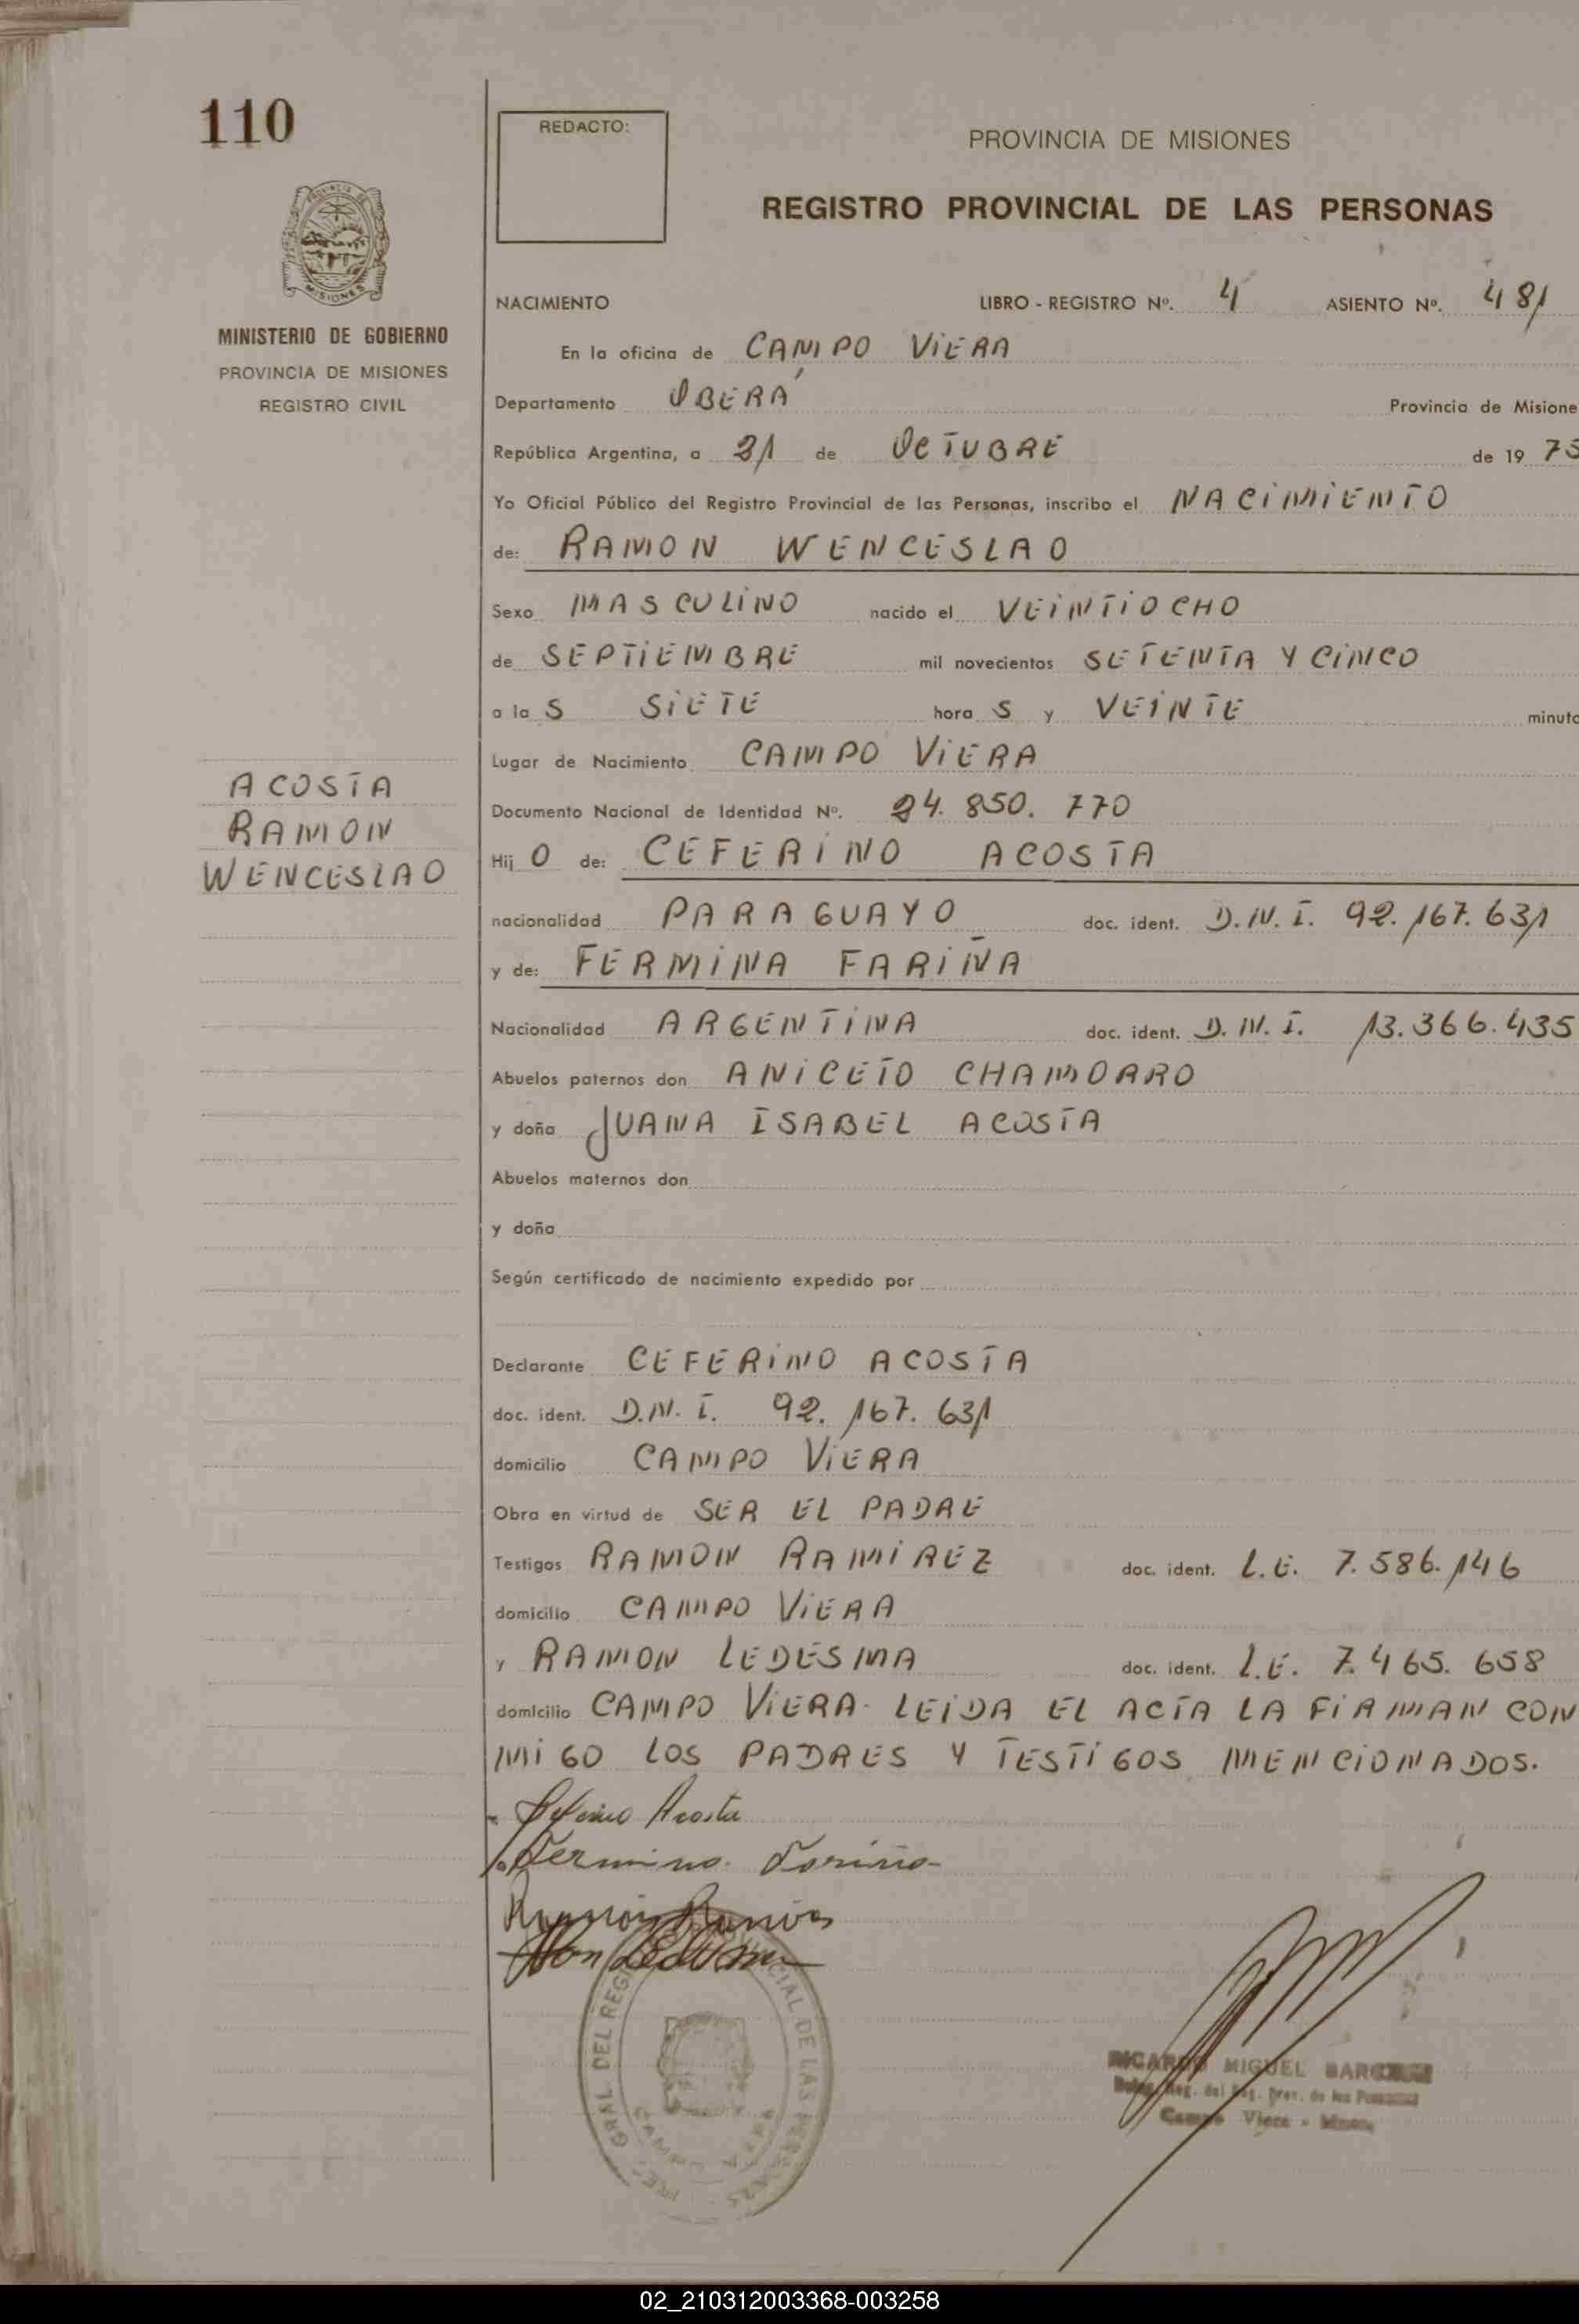 110
REDACTO:
PROVINCIA DE MISIONES
REGISTRO PROVINCIAL DE LAS PERSONAS
PROVINCIA DE
MISIONES
MINISTERIO DE GOBIERNO
PROVINCIA DE MISIONES
REGISTRO CIVIL
NACIMIENTO LIBRO - REGISTRO Nº. 4 ASIENTO Nº. 481
En la oficina de CAMPO VIERA
Departamento OBERÁ Provincia de Misione
República Argentina, a 31 de OCTUBRE de 19 75
Yo Oficial Público del Registro Provincial de las Personas, inscribo el NACIMIENTO
de: RAMON WENCESLAO
Sexo MASCULINO nacido el VEINTIOCHO
de SEPTIEMBRE mil novecientos SETENTA Y CINCO
a la S SIETE hora S y VEINTE minuto
Lugar de Nacimiento CAMPO VIERA
ACOSTA
RAMON
WENCESLAO
Documento Nacional de Identidad Nº. 24.850.770
Hij O de: CEFERINO ACOSTA
nacionalidad PARAGUAYO doc. ident. D.N.I. 92.167.631
y de: FERMINA FARIÑA
Nacionalidad ARGENTINA doc. ident. D.N.I. 13.366.435
Abuelos paternos don ANICETO CHAMORRO
y doña JUANA ISABEL ACOSTA
Abuelos maternos don
y doña
Según certificado de nacimiento expedido por
Declarante CEFERINO ACOSTA
doc. ident. D.N.I. 92.167.631
domicilio CAMPO VIERA
Obra en virtud de SER EL PADRE
Testigos RAMON RAMIREZ doc. ident. L.E. 7.586.146
domicilio CAMPO VIERA
y RAMON LEDESMA doc. ident. L.E. 7.465.658
domicilio CAMPO VIERA- LEIDA EL ACTA LA FIRMAN CON
MIGO LOS PADRES Y TESTIGOS MENCIONADOS.
Acosta
Fermina Fariña
GRAL. DEL REG CIAL DE LAS PERSONAS
RICARDO MIGUEL
Reg. del Reg. Prov. de las
Campo Viera - Misiones
02_210312003368-003258